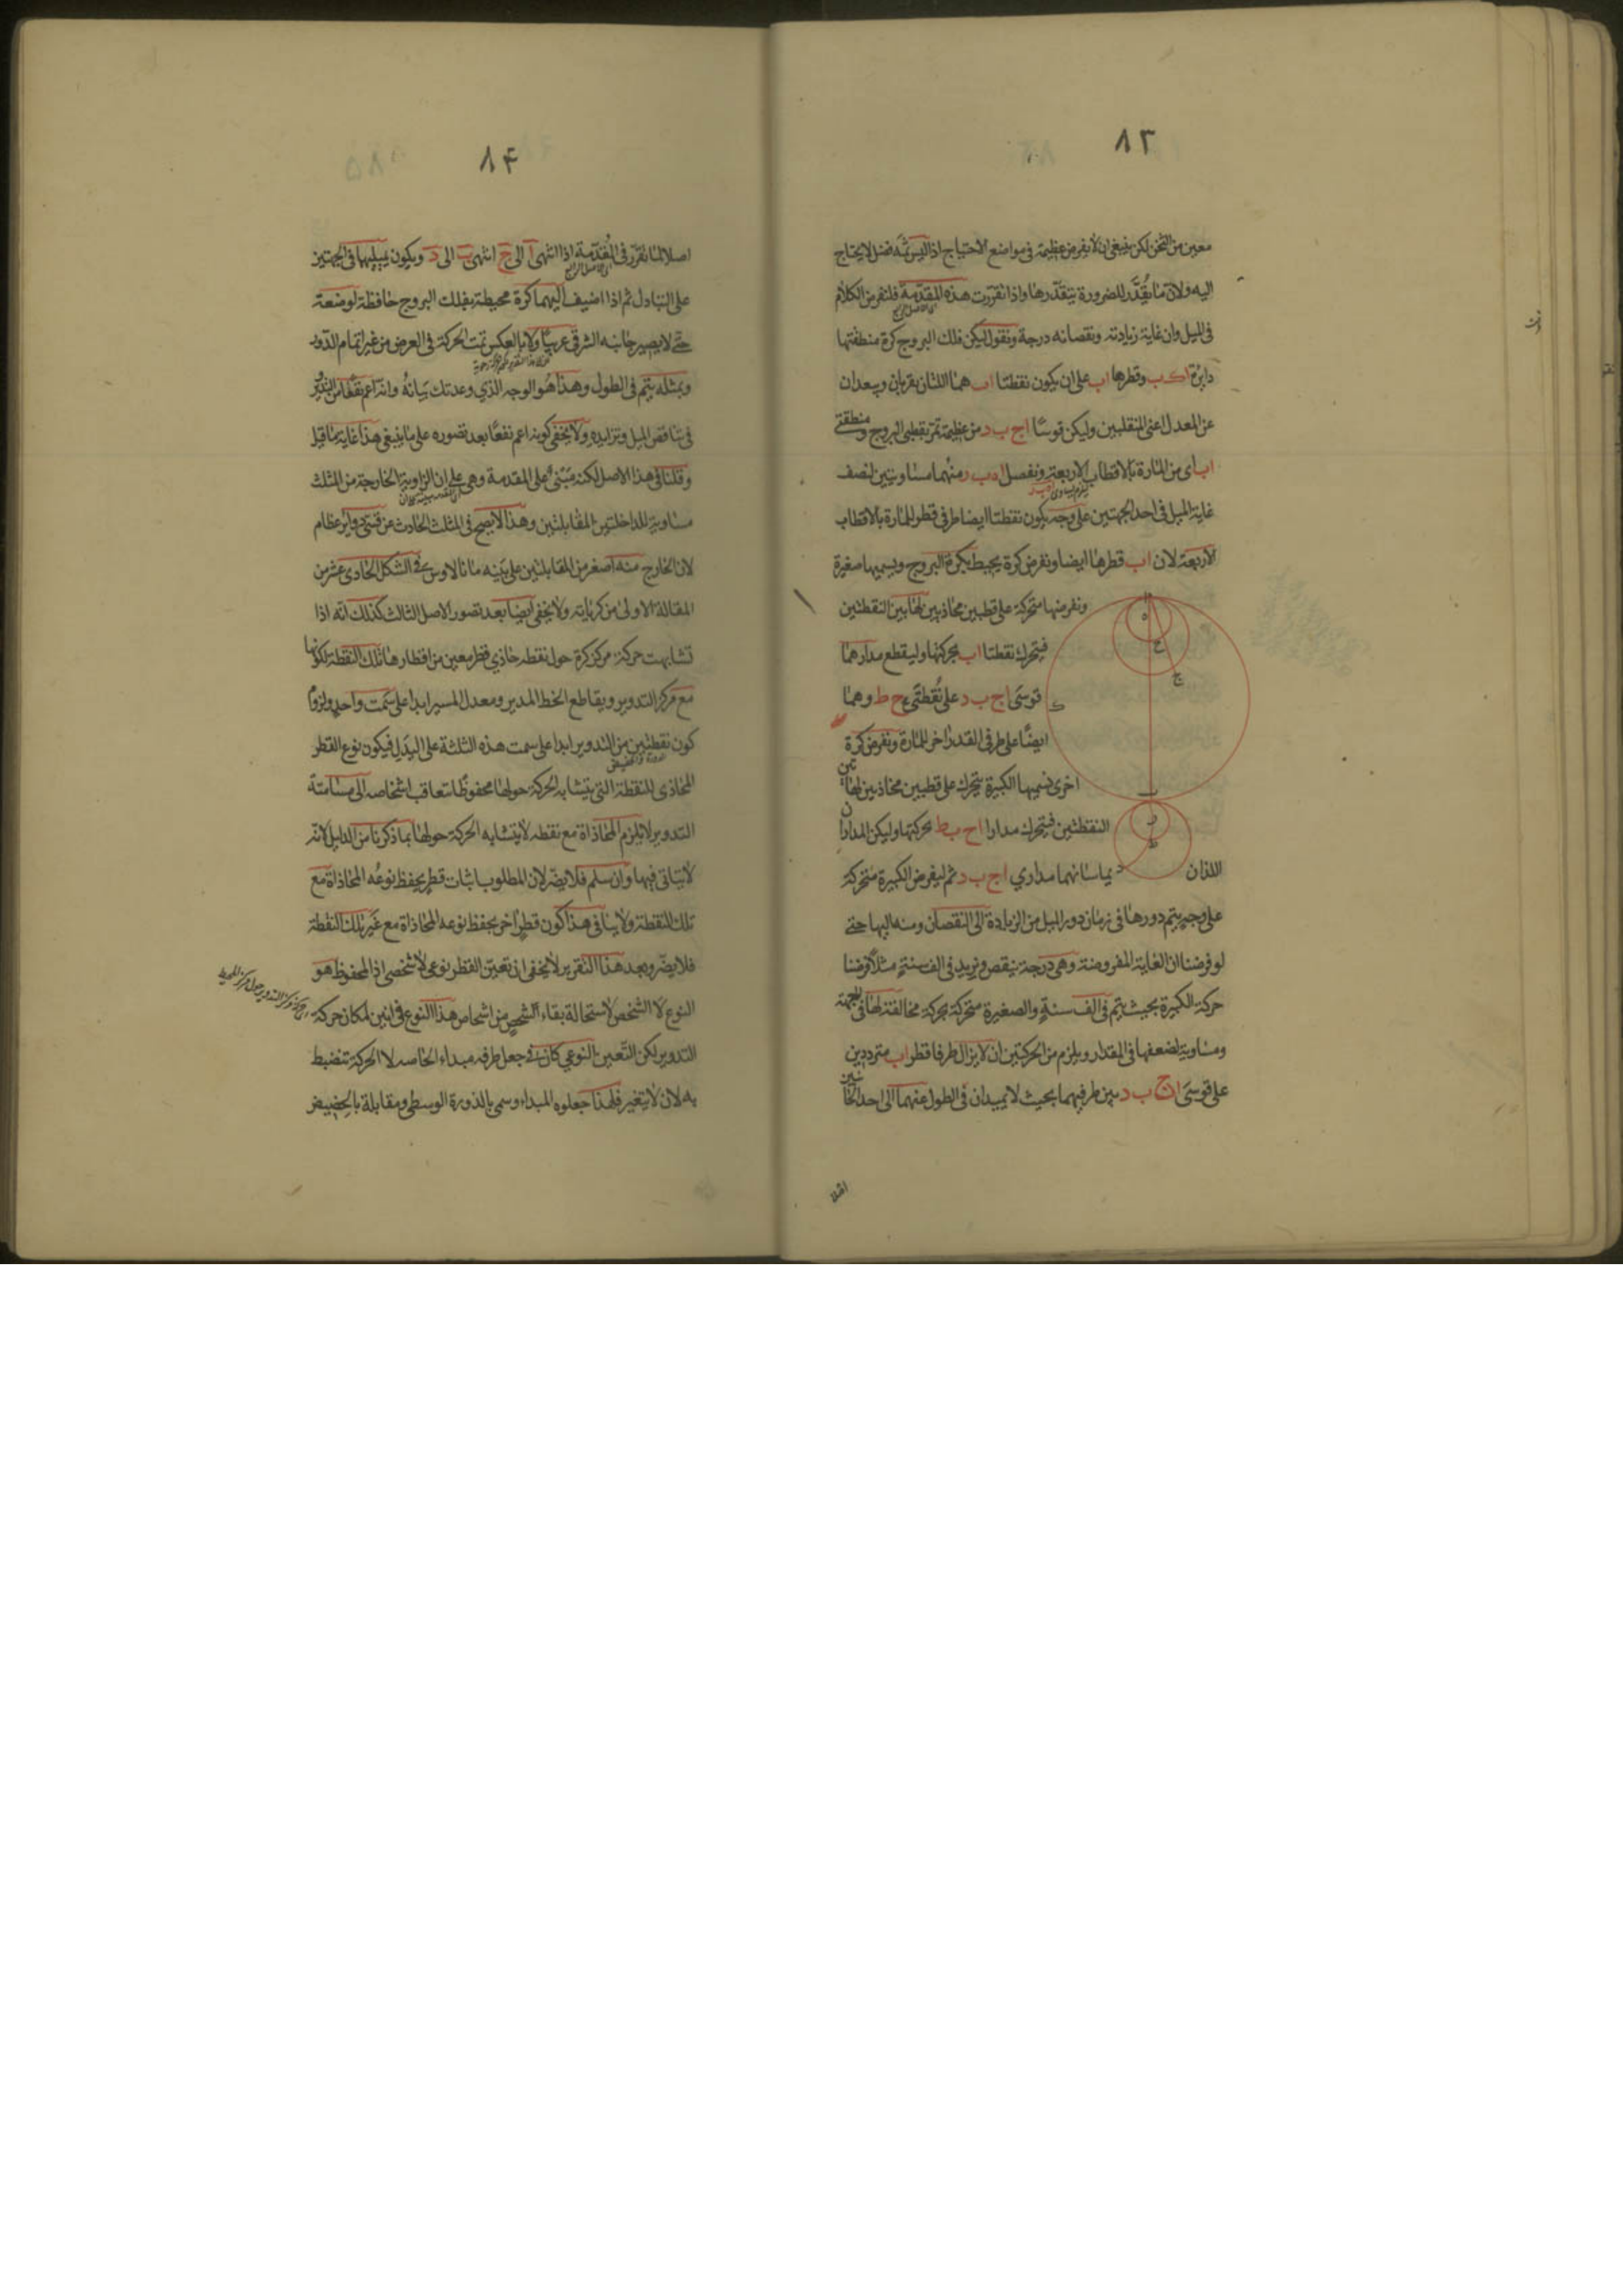 ٨٣
معين من الثخن لكن ينبغي ان لا يفرض عظيمة في مواضع الاحتياج اذ ليس ثمه فضل لا يحتاج
اليه ولان ما يقدر للضرورة يتقدر بقدرها واذا تقررت هذه المقدمة فلنفرض الكلام
في الميل وان غاية زيادته ونقصانه درجة ونقول ليكن فلك البروج كرة منطقتها
دايرة اكب وقطرها اب على ان يكون نقطتا اب هما اللتان يقربان ويبعدان
عن المعدل اعني المنقلبين وليكن قوسا اج ب د من عظيمة تمر بقطبي البروج ومنطقتي
اب اي من المارة بالاقطاب الاربعة ونفصل اه ب ر منهما مساويتين لنصف
غاية الميل في احد الجهتين على وجه يكون نقطتا ايضا طرفي قطر للمارة بالاقطاب
الاربعة لان اب قطرها ايضا ونفرض كرة يحيط بكرة البروج ويسميها صغيرة
ونفرضها متحركة على قطبين محاذيين لهاتين النقطتين
فيتحرك نقطتا اب بحركتها وليقطع مدارهما
قوسي اج ب د على نقطتي ح ط وهما
ايضا على طرفي القدر اخر للمارة ونفرض كرة
اخرى نسميها الكبيرة يتحرك على قطبين محاذيين لهاتين
النقطتين فيتحرك مدارا اح ب ط بحركتها وليكن المداران
اللذان يماسانهما مداري اج ب د ثم ليفرض الكبيرة متحركة
على وجه يتم دورها في زمان دور الميل من الزيادة الى النقصان ومنه اليها حتى
لو فرضنا ان الغاية المفروضة وهي درجة ينقص ويزيد في الف سنة مثلا فرضنا
حركة الكبيرة بحيث يتم في الف سنة والصغيرة متحركة بحركة مخالفة لها في الجهة
ومساوية لضعفها في المقدار ويلزم من الحركتين ان لا يزال طرفا قطر اب مترددين
على قوسي اج ب د بين طرفيهما بحيث لا يميدان في الطول عنهما الى احد الجانبين
اصلا
٨۴
اصلا لما تقرر في المقدمة اذا انتهى ا الى ج انتهى ب الى د ويكون ميلهما في الجهتين
على التبادل ثم اذا اضيف اليهما كرة محيطة بفلك البروج حافظة لوضعه
حتى لا يصير جانبه الشرقي غربيا ولا بالعكس تمت الحركة في العرض من غير اتمام الدور
وبمثله يتم في الطول وهذا هو الوجه الذي وعدتك بيانه وانه اعم نفعا من
في تناقص الميل وتزايده ولا يخفى كونه اعم نفعا بعد تصوره على ما ينبغي هذا غاية ما قيل
وقلنا في هذا الاصل لكنه مبتنى على المقدمة وهي على ان الزاوية الخارجة من المثلث
مساوية للداخلتين المقابلتين وهذا لا يصح في المثلث الحادث عن قسي دواير عظام
لان الخارج منه اصغر من المقابلتين على ما بينه مانالاوس في الشكل الحادي عشر من
المقالة الاولى من كرياته ولا يخفى ايضا بعد تصور الاصل الثالث كذلك انه اذا
تشابهت حركة مركز كرة حول نقطه حاذي قطر معين من اقطارها تلك النقطة لكونها
مع مركز التدوير وبقاطع الخط المدير ومعدل المسير ابدا على سمت واحد ولزوم
كون نقطتين من التدوير ابدا على سمت هذه الثلثة على البدل فيكون نوع القطر
المحاذي للنقطة التي يتشابه الحركة حولها محفوظا بتعاقب اشخاصه الى مسامتة
التدوير لا يلزم المحاذاة مع نقطه لا يتشابه الحركة حولها بما ذكرنا من الدليل لانه
لا يتاتى فيها وان سلم فلا يضر لان المطلوب اثبات قطر يحفظ نوعه المحاذاة مع
تلك النقطة ولا ينافي هذا كون قطر اخر يحفظ نوعه المحاذاة مع غير تلك النقطة
فلا يضر وبعد هذا التقرير لا يخفى ان تعين القطر نوعي لا شخصي اذ المحفوظ هو
النوع لا الشخص لاستحالة بقاء الشخص من اشخاص هذا النوع في انين لمكان حركة
التدوير لكن التعين النوعي كان في جعل طرفه مبداء الخاصه لا الحركة تنضبط
به لان لا يتغير فلهذا جعلوه المبداء وسمي بالذورة الوسطى ومقابلة بالحضيض